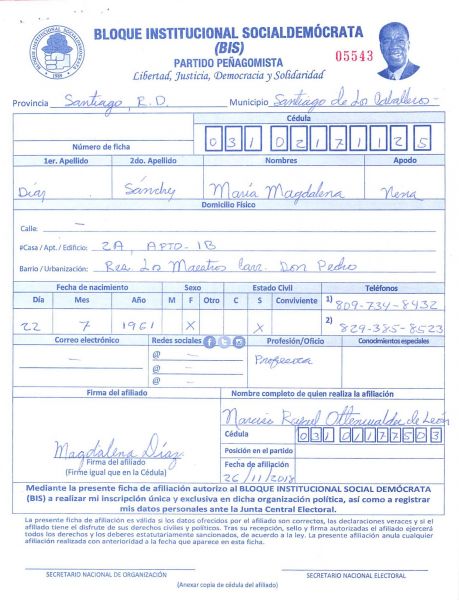 BLOQUE INSTITUCIONAL SOCIALDEMÓCRATA
(BIS)
PARTIDO PEÑAGOMISTA
Libertad, Justicia, Democracia y Solidaridad
05543
Provincia Santiago, R.D. Municipio Santiago de Los Caballeros
Cédula
Número de ficha 031 0217112 5
1er. Apellido 2do. Apellido Nombres Apodo
Díaz Sánchez María Magdalena Nena
Domicilio Físico
Calle: —
#Casa / Apt. / Edificio: 2A, APTO-1B
Barrio / Urbanización: Res. Los Maestros Carr. Don Pedro
Fecha de nacimiento Sexo Estado Civil Teléfonos
Día Mes Año M F Otro C S Conviviente 1) 809-734-8432
22 7 1961 X X 2) 829-385-8523
Correo electrónico Redes sociales Profesión/Oficio Conocimientos especiales
— @ — Profesora
@ —
@ —
Firma del afiliado Nombre completo de quien realiza la afiliación
Narciso Rafael Ottenwalder de León
Cédula
031 0117750 3
Magdalena Díaz
Posición en el partido
Firma del afiliado
(Firme igual que en la Cédula)
Fecha de afiliación
26/11/2018
Mediante la presente ficha de afiliación autorizo al BLOQUE INSTITUCIONAL SOCIAL DEMÓCRATA
(BIS) a realizar mi inscripción única y exclusiva en dicha organización política, así como a registrar
mis datos personales ante la Junta Central Electoral.
La presente ficha de afiliación es válida si los datos ofrecidos por el afiliado son correctos, las declaraciones veraces y si el
afiliado tiene el disfrute de sus derechos civiles y políticos. Tras su recepción, sello y firma autorizadas el afiliado ejercerá
todos los derechos y los deberes estatutariamente sancionados, de acuerdo a la ley. La presente afiliación anula cualquier
afiliación realizada con anterioridad a la fecha que aparece en esta ficha.
SECRETARIO NACIONAL DE ORGANIZACIÓN SECRETARIO NACIONAL ELECTORAL
(Anexar copia de cédula del afiliado)